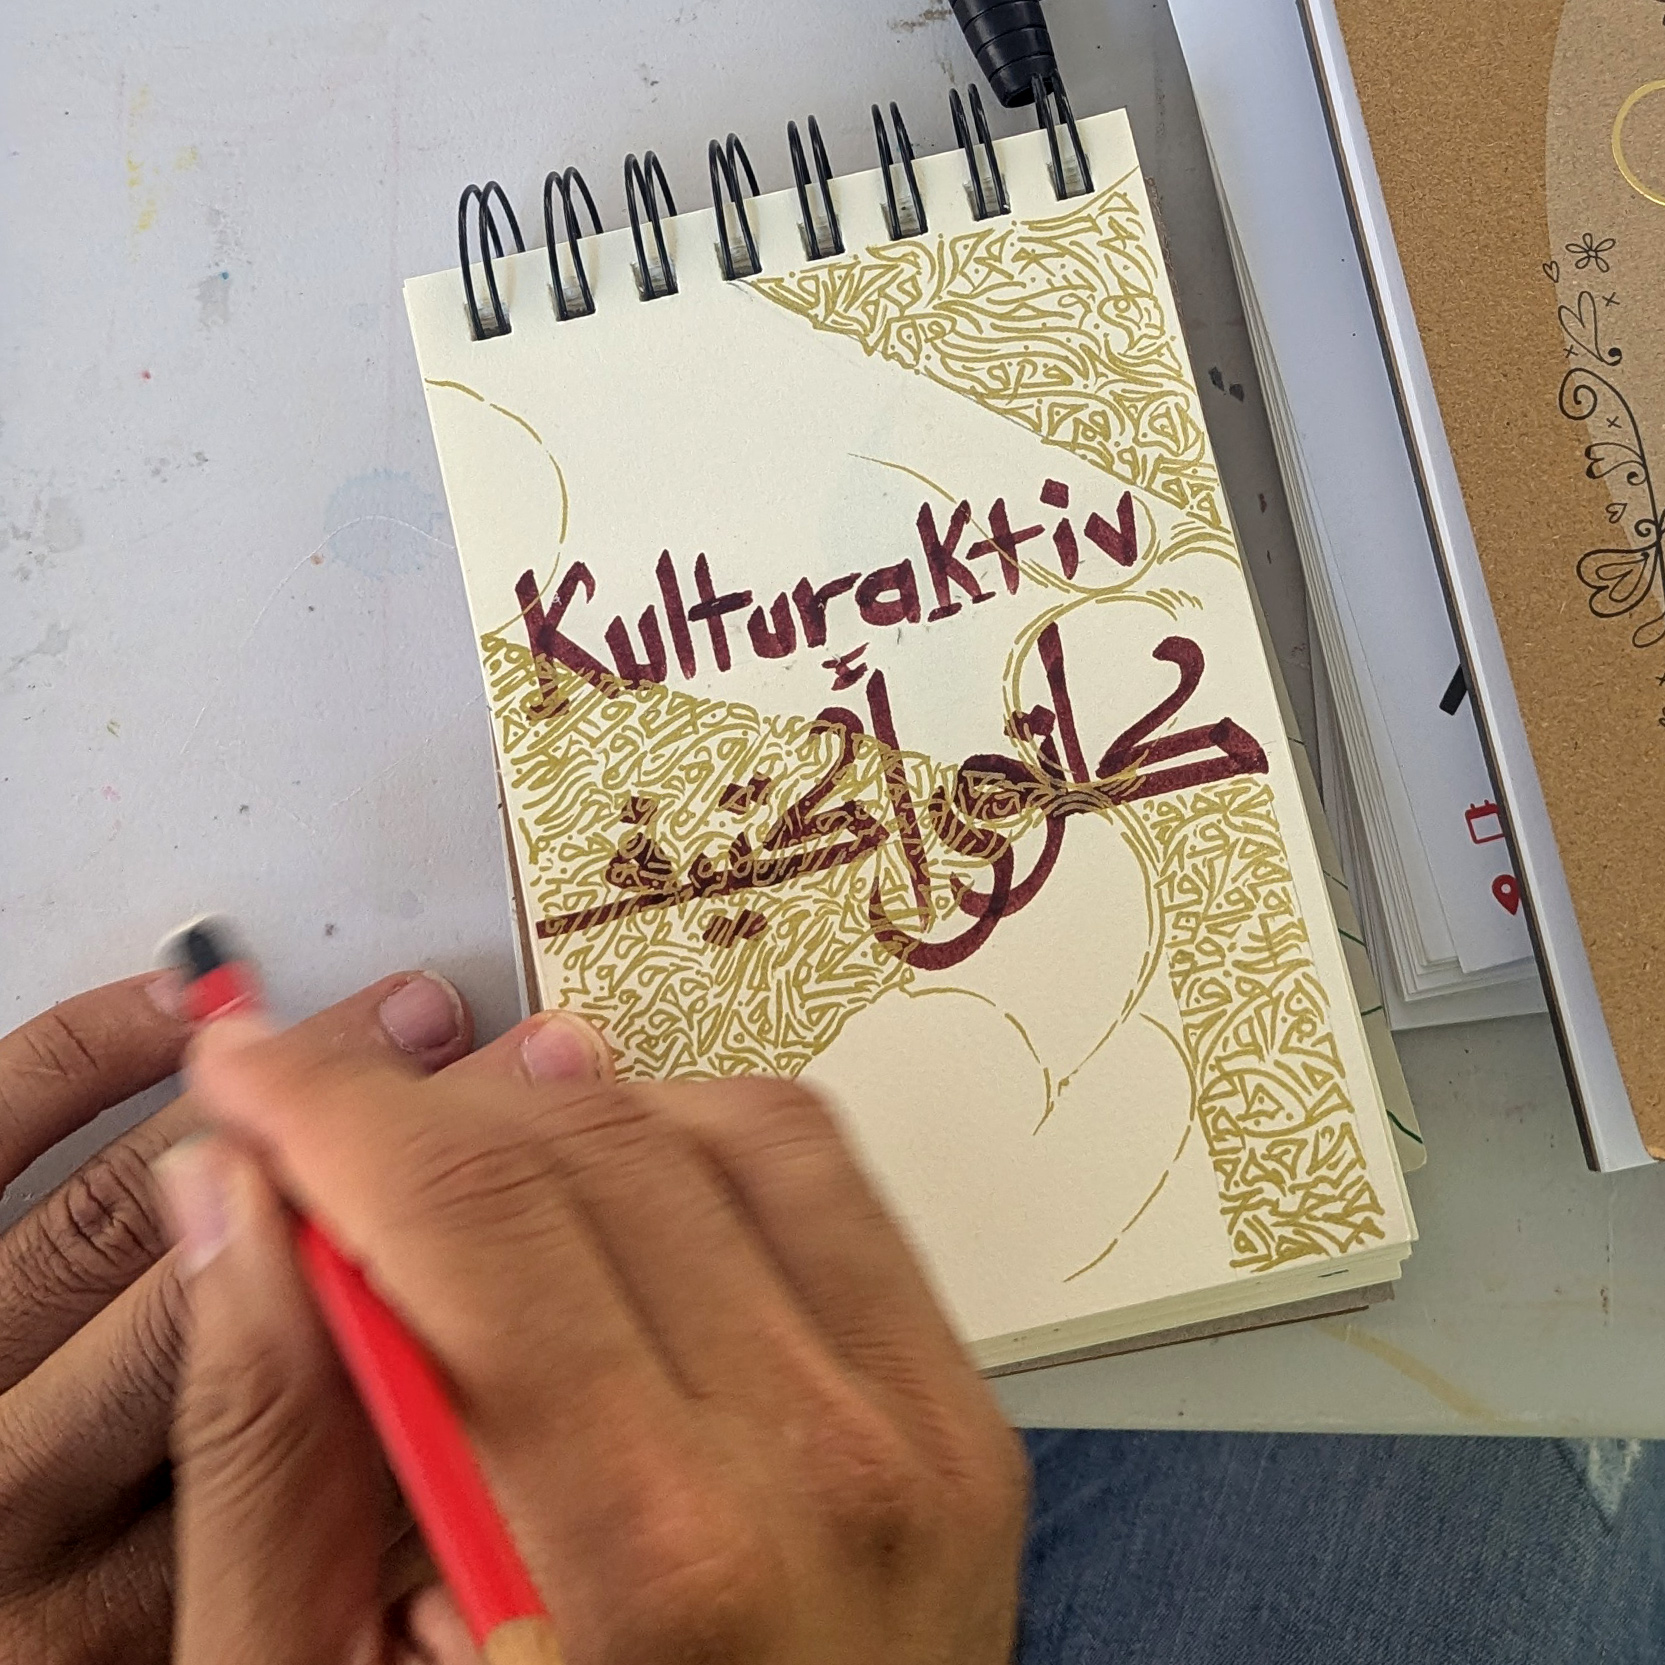 Kulturaktiv
كلتورأكتيڤ